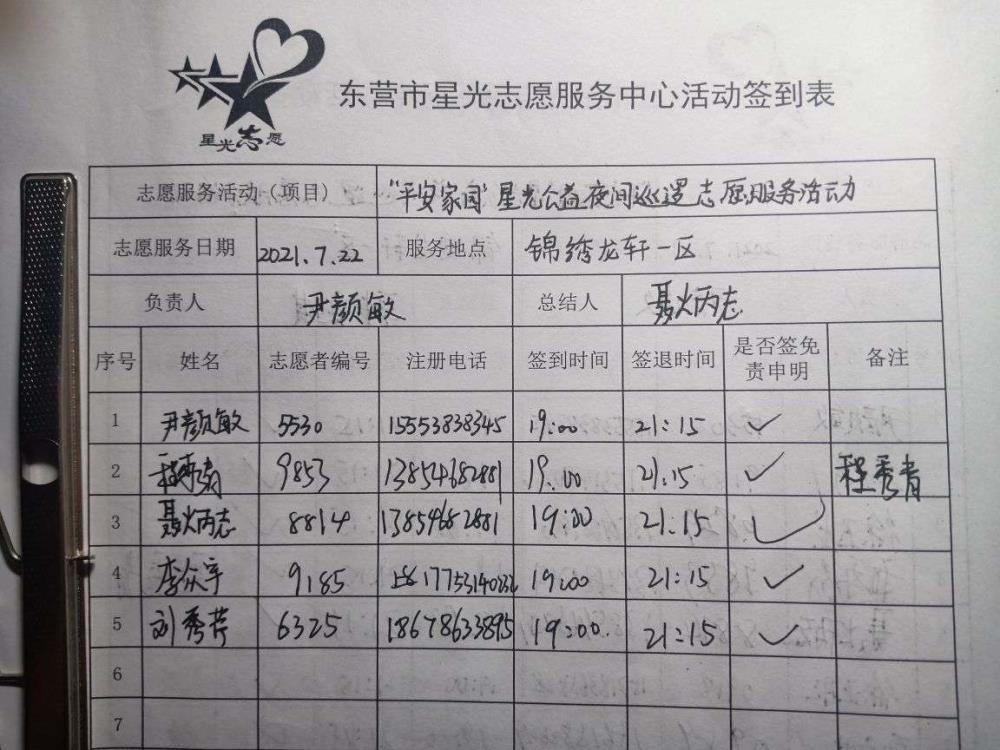 星光志愿
东营市星光志愿服务中心活动签到表
志愿服务活动（项目） "平安家园"星光公益夜间巡逻志愿服务活动
志愿服务日期 2021.7.22 服务地点 锦绣龙轩一区
负责人 尹颜敏 总结人 聂炳志
序号 姓名 志愿者编号 注册电话 签到时间 签退时间 是否签免责申明 备注
1 尹颜敏 5530 15553838345 19:00 21:15 ✓
2 9853 13854682881 19:00 21:15 ✓ 程秀青
3 聂炳志 8814 13854682881 19:00 21:15 ✓
4 李众宇 9185 19:00 21:15 ✓
5 刘秀芹 6325 18678633895 19:00. 21:15 ✓
6
7